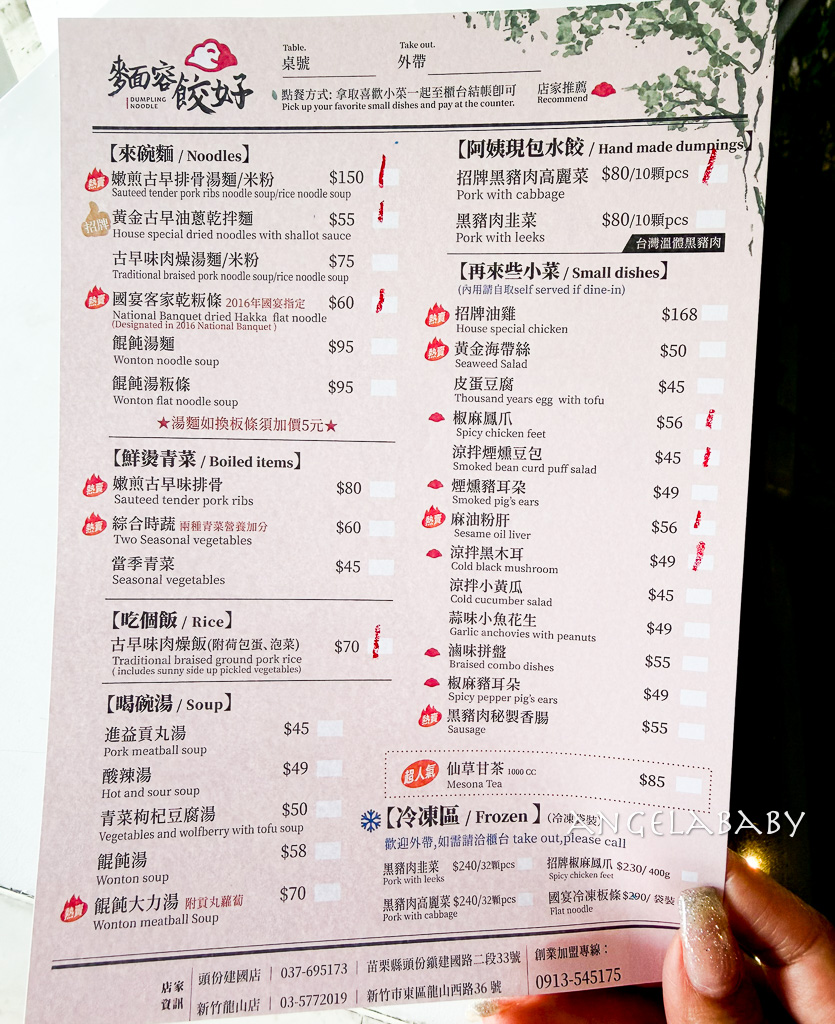 麵面容餃好
DUMPLING
NOODLE
Table.
桌號
Take out.
外帶
點餐方式: 拿取喜歡小菜一起至櫃台結帳即可
Pick up your favorite small dishes and pay at the counter.
店家推薦
Recommend
【來碗麵 / Noodles】
熱賣 嫩煎古早排骨湯麵/米粉 $150
Sauteed tender pork ribs noodle soup/rice noodle soup
招牌 黃金古早油蔥乾拌麵 $55
House special dried noodles with shallot sauce
古早味肉燥湯麵/米粉 $75
Traditional braised pork noodle soup/rice noodle soup
熱賣 國宴客家乾粄條 2016年國宴指定 $60
National Banquet dried Hakka flat noodle
(Designated in 2016 National Banquet )
餛飩湯麵 $95
Wonton noodle soup
餛飩湯粄條 $95
Wonton flat noodle soup
★湯麵如換板條須加價5元★
【鮮燙青菜 / Boiled items】
熱賣 嫩煎古早味排骨 $80
Sauteed tender pork ribs
熱賣 綜合時蔬 兩種青菜營養加分 $60
Two Seasonal vegetables
當季青菜 $45
Seasonal vegetables
【吃個飯 / Rice】
古早味肉燥飯(附荷包蛋、泡菜) $70
Traditional braised ground pork rice
( includes sunny side up pickled vegetables)
【喝碗湯 / Soup】
進益貢丸湯 $45
Pork meatball soup
酸辣湯 $49
Hot and sour soup
青菜枸杞豆腐湯 $50
Vegetables and wolfberry with tofu soup
餛飩湯 $58
Wonton soup
熱賣 餛飩大力湯 附貢丸蘿蔔 $70
Wonton meatball Soup
【阿姨現包水餃 / Hand made dumpings】
招牌黑豬肉高麗菜 $80/10顆pcs
Pork with cabbage
黑豬肉韭菜 $80/10顆pcs
Pork with leeks
台灣溫體黑豬肉
【再來些小菜 / Small dishes】
(內用請自取self served if dine-in)
熱賣 招牌油雞 $168
House special chicken
熱賣 黃金海帶絲 $50
Seaweed Salad
皮蛋豆腐 $45
Thousand years egg with tofu
椒麻鳳爪 $56
Spicy chicken feet
涼拌煙燻豆包 $45
Smoked bean curd puff salad
煙燻豬耳朵 $49
Smoked pig's ears
熱賣 麻油粉肝 $56
Sesame oil liver
涼拌黑木耳 $49
Cold black mushroom
涼拌小黃瓜 $45
Cold cucumber salad
蒜味小魚花生 $49
Garlic anchovies with peanuts
滷味拼盤 $55
Braised combo dishes
椒麻豬耳朵 $49
Spicy pepper pig's ears
熱賣 黑豬肉秘製香腸 $55
Sausage
超人氣 仙草甘茶 1000 CC $85
Mesona Tea
【冷凍區 / Frozen 】(冷凍袋裝)
ANGELABABY
歡迎外帶,如需請洽櫃台 take out,please call
黑豬肉韭菜 $240/32顆pcs
Pork with leeks
招牌椒麻鳳爪 $230/ 400g
Spicy chicken feet
黑豬肉高麗菜 $240/32顆pcs
Pork with cabbage
國宴冷凍板條 $290/ 袋裝
Flat noodle
店家資訊
頭份建國店 | 037-695173 | 苗栗縣頭份鎮建國路二段33號
新竹龍山店 | 03-5772019 | 新竹市東區龍山西路36 號
創業加盟專線：
0913-545175